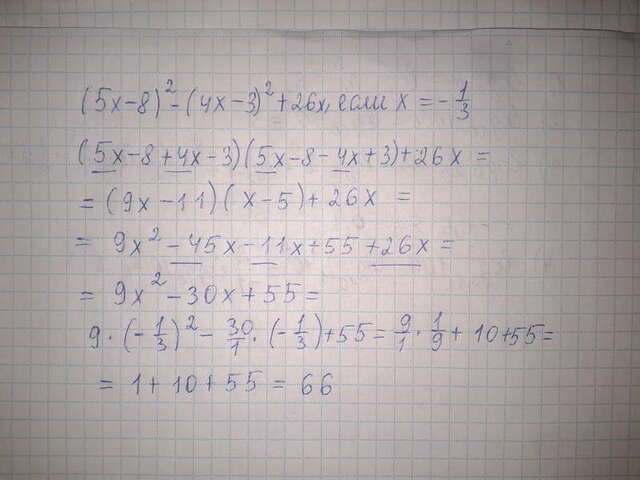 (5x-8)² - (4x-3)² + 26x, если x = -1/3
(5x-8+4x-3)(5x-8-4x+3)+26x =
= (9x-11)(x-5)+26x =
= 9x² - 45x - 11x + 55 + 26x =
= 9x² - 30x + 55 =
9·(-1/3)² - 30/1·(-1/3)+55 = 9/1·1/9 + 10+55 =
= 1+10+55 = 66